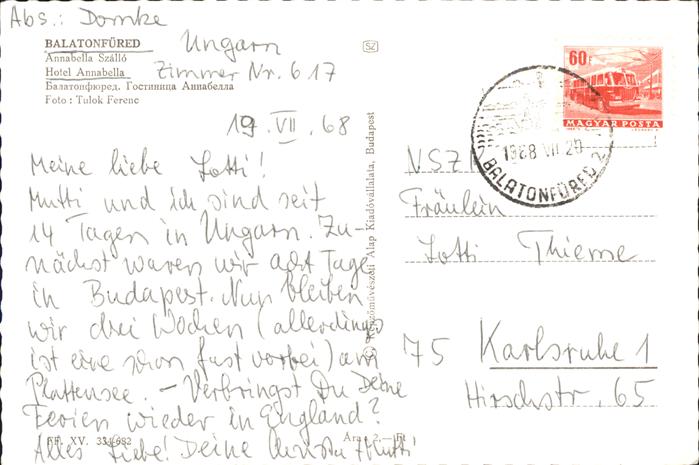 Abs.: Domke
BALATONFÜRED Ungarn
Annabella Szálló
Hotel Annabella Zimmer Nr. 617
Балатонфюред. Гостиница Аннабелла
Foto: Tulok Ferenc
19. VII. 68
Meine liebe Lotti!
Mutti und ich sind seit
14 Tagen in Ungarn. Zu-
nächst waren wir acht Tage
in Budapest. Nun bleiben
wir drei Wochen (allerdings
ist eine schon fast vorbei) am
Plattensee. – Verbringst Du Deine
Ferien wieder in England?
Alles Liebe! Deine Christa + Mutti
FF. XV. 334-682
Ára: 2,– Ft
SZ
Képzőművészeti Alap Kiadóvállalata, Budapest
60f
MAGYAR POSTA
1968 VII 20
BALATONFÜRED 2
NSZK
Fräulein
Lotti Thieme
75 Karlsruhe 1
Hirschstr. 65